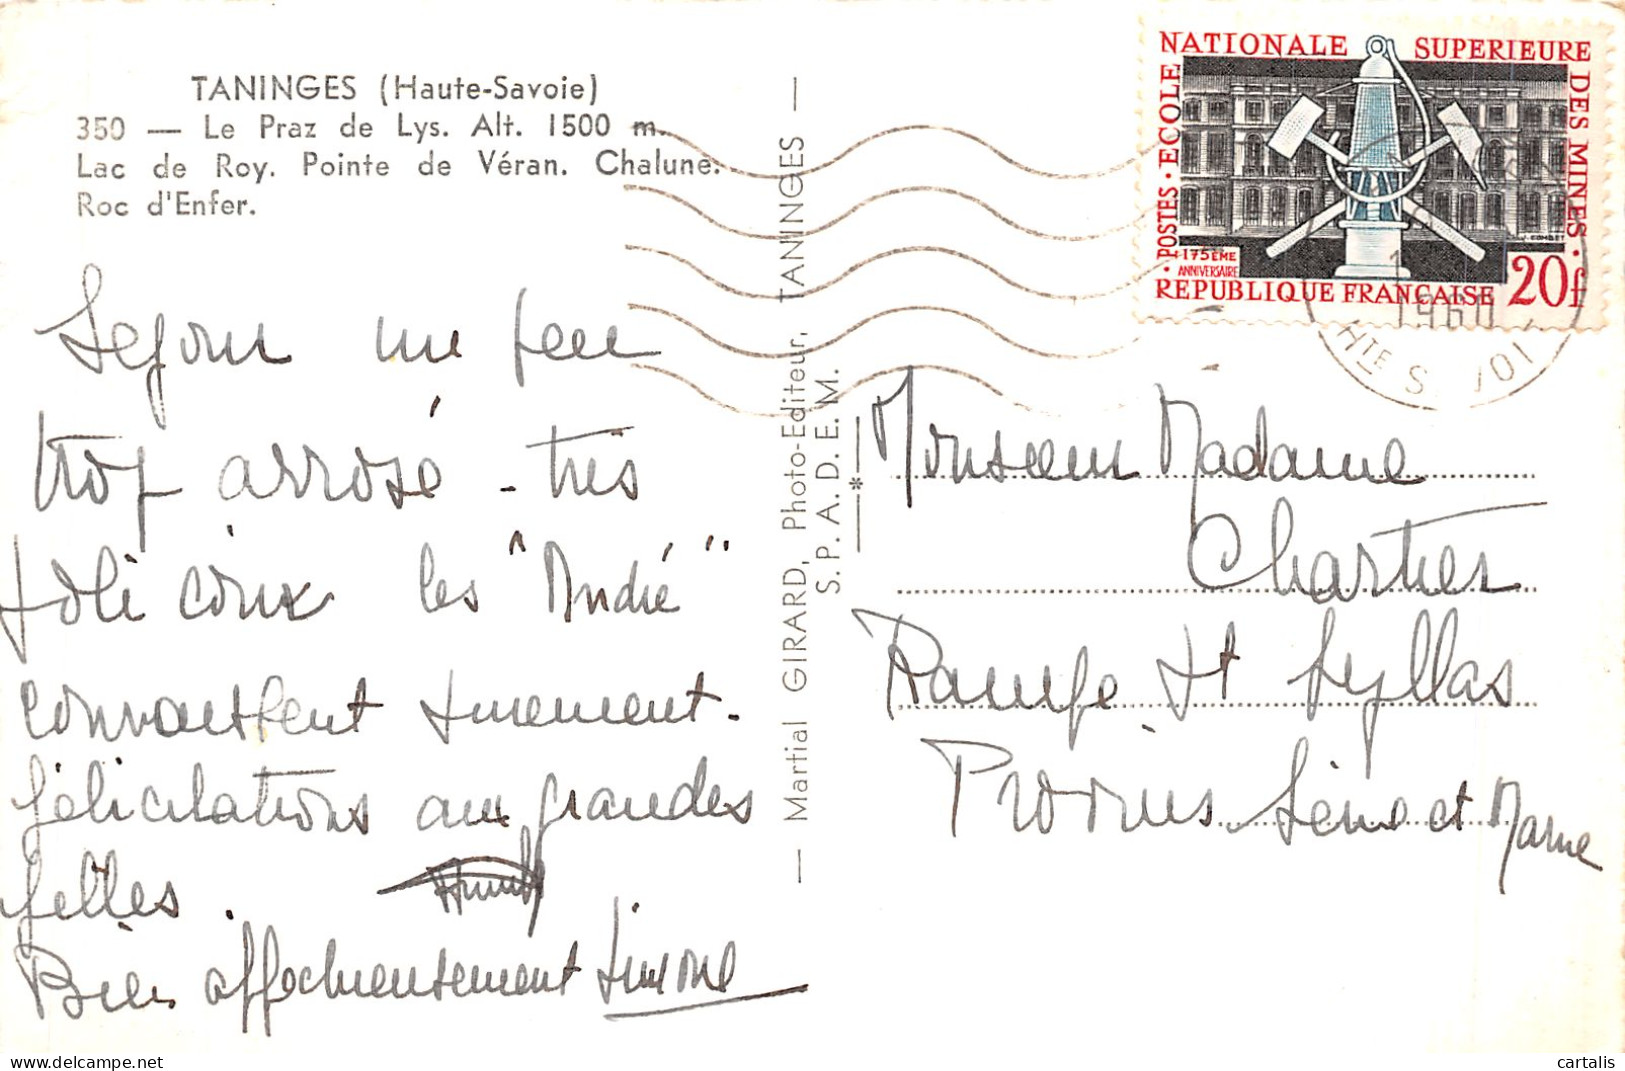 TANINGES (Haute-Savoie)
350 — Le Praz de Lys. Alt. 1500 m.
Lac de Roy. Pointe de Véran. Chalune.
Roc d'Enfer.
Séjour un peu
trop arrosé - très
joli coin les "André"
connaissent sûrement.
félicitations aux grandes
filles.
Bien affectueusement Simone
— Martial GIRARD, Photo-Editeur, TANINGES —
S. P. A. D. E. M.
*
NATIONALE SUPERIEURE
DES MINES
POSTES · ECOLE
175ÈME
ANNIVERSAIRE
REPUBLIQUE FRANÇAISE 20f
J. COMBET
1960
HTE S
Monsieur Madame
Chartier
Rampe St Syllas
Provins Seine et Marne
cartalis